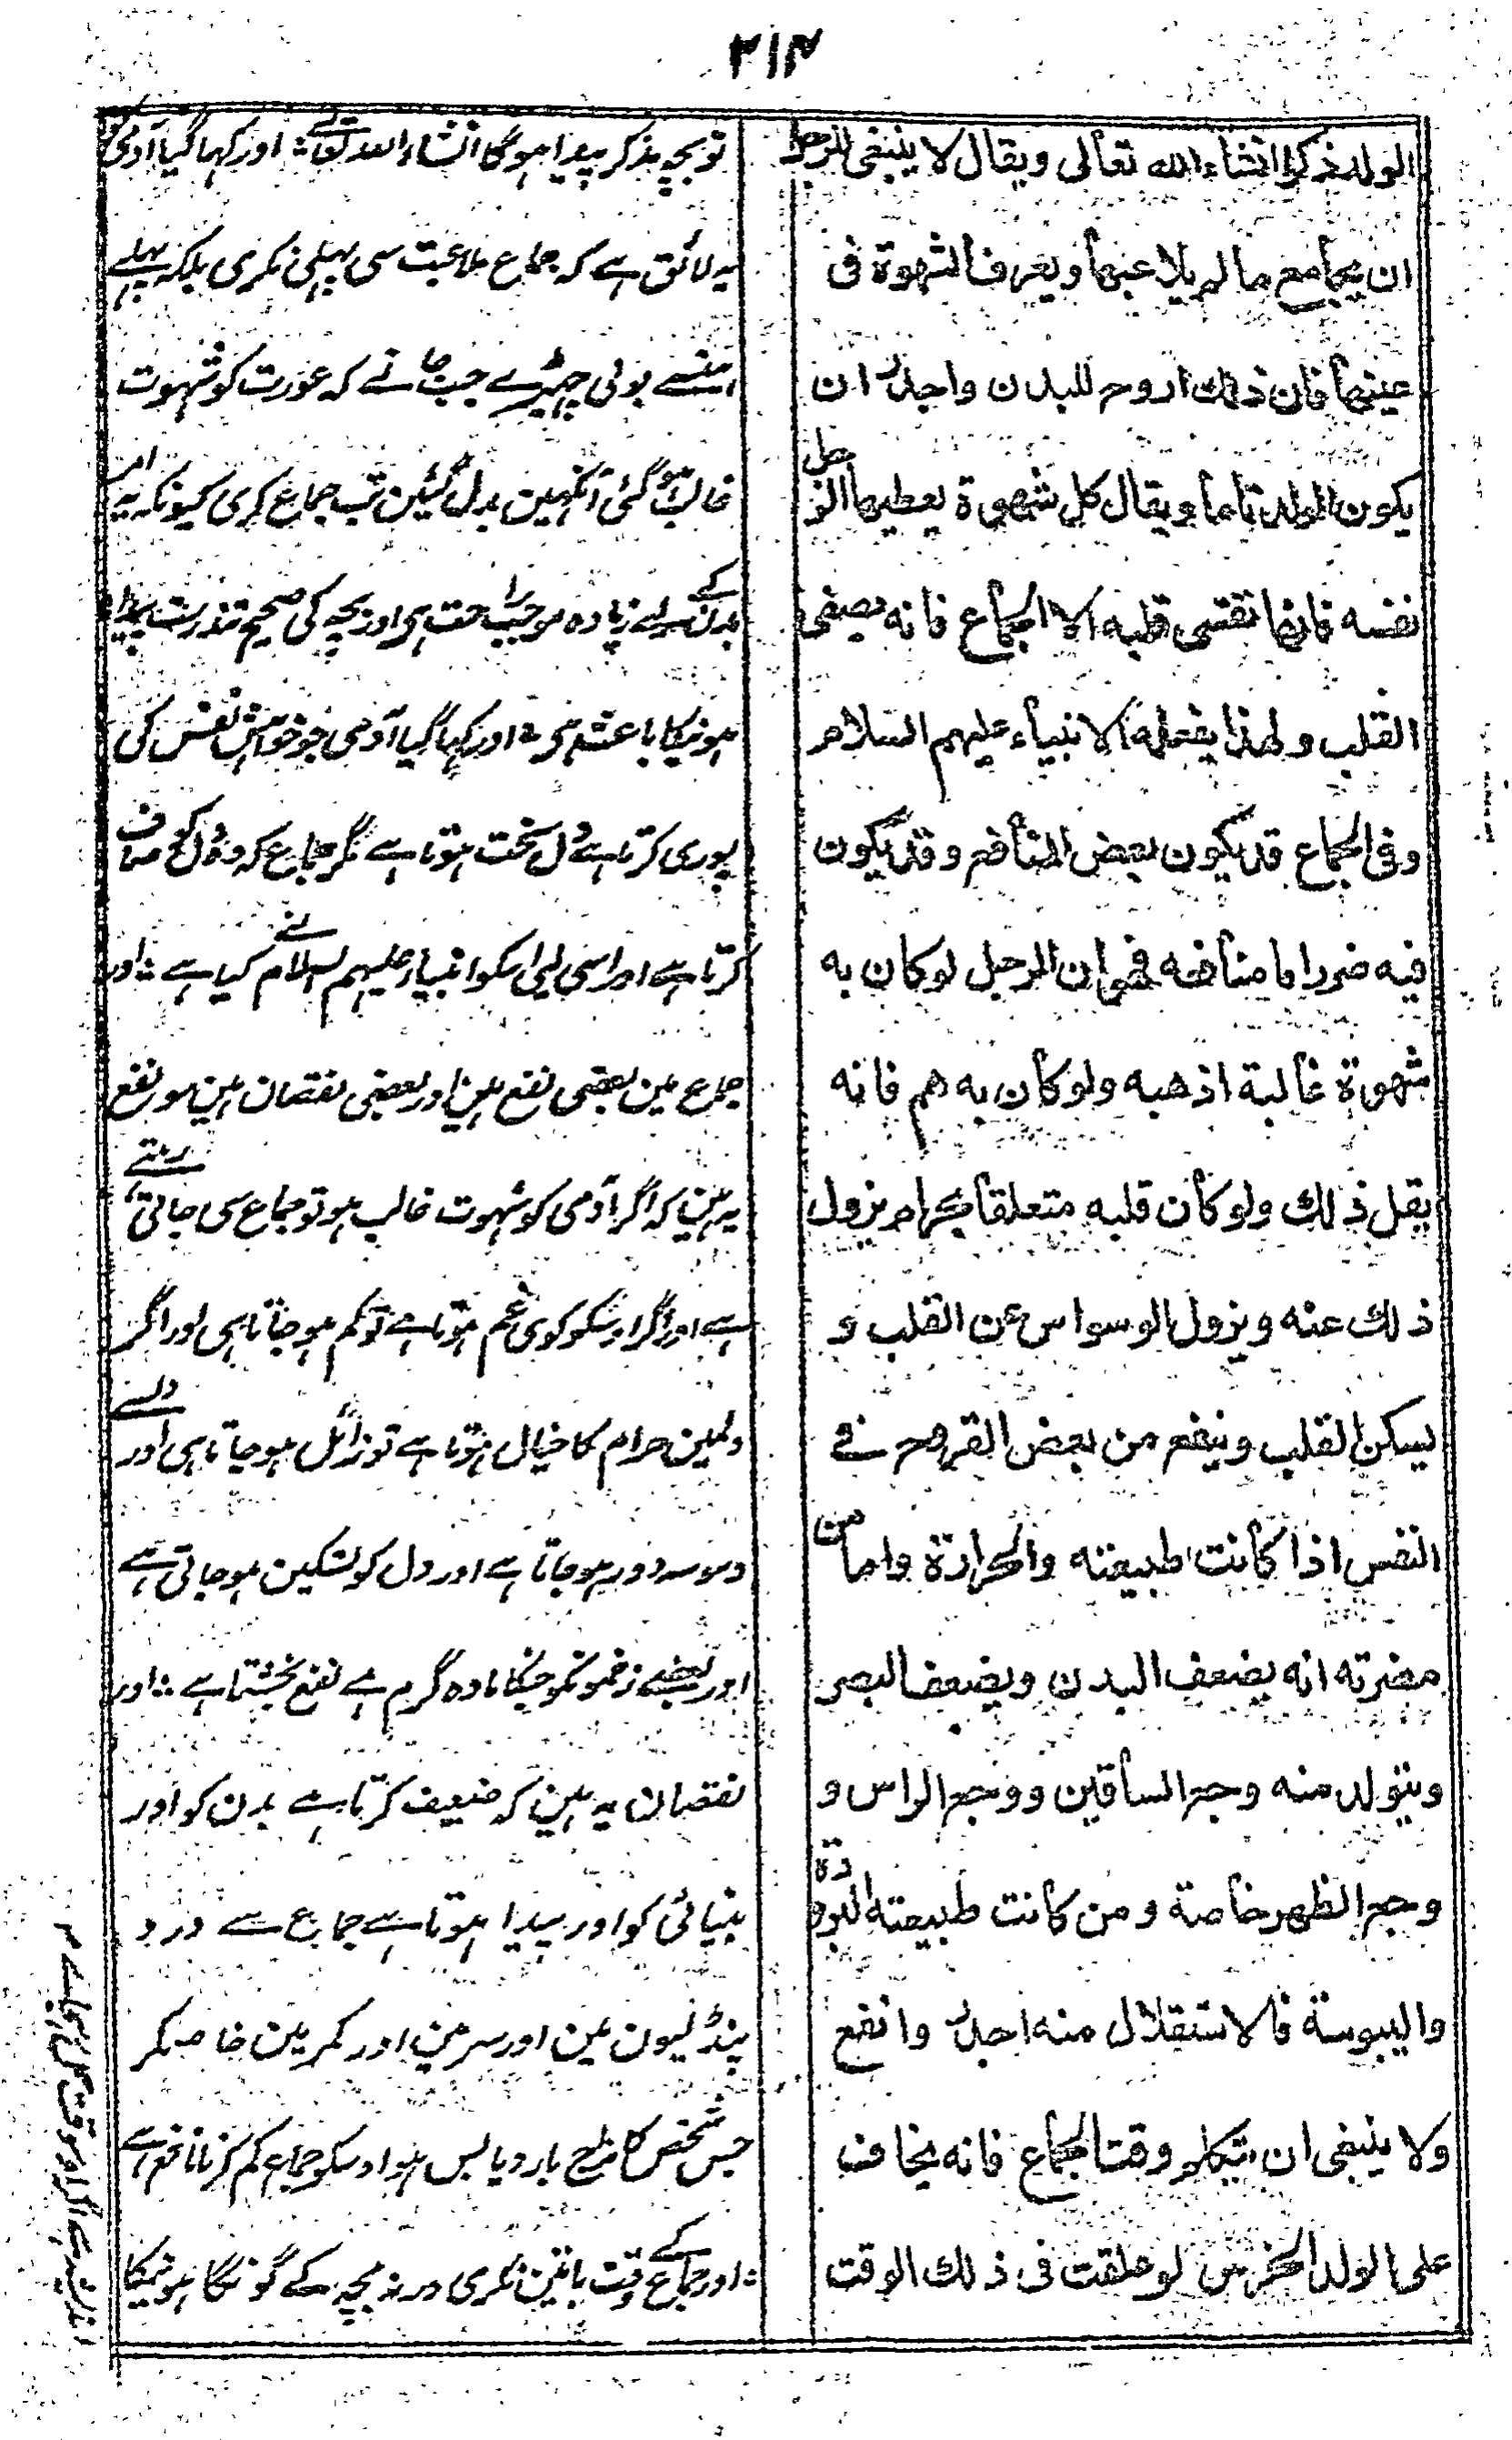 ۲۱۴
الولد ذكرا انشاء الله تعالى ويقال لا ينبغى للرجل
ان يجامع ما لم يلاعبها ويعرف الشهوة فى
عينها فان ذلك اروح للبدن واجدر ان
يكون الولد تاما ويقال كل شهوة يعطيها الرجل
نفسه فانها تقسى قلبه الا الجماع فانه يصفى
القلب ولهذا يفعله الانبياء عليهم السلام
وفى الجماع قد يكون بعض المنافع وقد يكون
فيه ضرر اما منافعه فهو ان الرجل لو كان به
شهوة غالبة اذهبه ولو كان به هم فانه
يقل ذلك ولو كان قلبه متعلقا بحرام يزول
ذلك عنه ويزول الوسواس عن القلب و
يسكن القلب وينفع من بعض القروح فے
النفس اذا كانت طبيعته والحرارة واما من
مضرته انه يضعف البدن ويضعف البصر
ويتولد منه وجع الساقين ووجع الراس و
وجع الظهر خاصة ومن كانت طبيعته البرودة
واليبوسة فالاستقلال منه احدر وانفع
ولا ينبغى ان يتكلم وقت الجماع فانه يخاف
على الولد الخرس لو علقت فى ذلك الوقت
تو بچہ مذکر پیدا ہوگا انشاء اللہ تعالے ؛ اور کہا گیا آدمی کو
یہ لائق ہے کہ جماع ملاعبت سی پہلی نکری بلکہ پہلے
ہنسے بولی چہیڑے جب جانے کہ عورت کو شہوت
غالب ہو گئی آنکہین بدل گئین تب جماع کری کیونکہ یہ امر
بدن کے لیے زیادہ موجب راحت ہی اور بچہ کی صحیح تندرست پیدا
ہونیکا باعث ہی ؛ اور کہا گیا آدمی جو خواہش نفس کی
پوری کرتا ہے دل سخت ہوتا ہے مگر جماع کہ وہ دل کو صاف
کرتا ہے اور اسی لیی اسکو انبیاء علیہم السلام نے کیا ہے ؛ اور
جماع مین بعضی نفع ہین اور بعضی نقصان ہین سو نفع
یہ ہین کہ اگر آدمی کو شہوت غالب ہو تو جماع سی جاتی رہتے
ہے اور اگر اوسکو کوی غم ہوتا ہے تو کم ہو جاتا ہی اور اگر
دلمین حرام کا خیال ہوتا ہے تو زائل ہو جاتا ہی اور دلسے
وسوسہ دور ہو جاتا ہے اور دل کو تسکین ہو جاتی ہے
اور بعضے زخمونکو جنکا مادہ گرم ہے نفع بخشتا ہے ؛ اور
نقصان یہ ہین کہ ضعیف کرتا ہے بدن کو اور
بینائی کو اور پیدا ہوتا ہے جماع سے درد
پنڈلیون مین اور سر مین اور کمر مین خاصکر
جس شخص کا مزاج بارد یابس ہو اوسکو جماع کم کرنا نافع ہے
؛ اور جماع کے وقت باتین نکری ورنہ بچہ کے گونگا ہونیکا